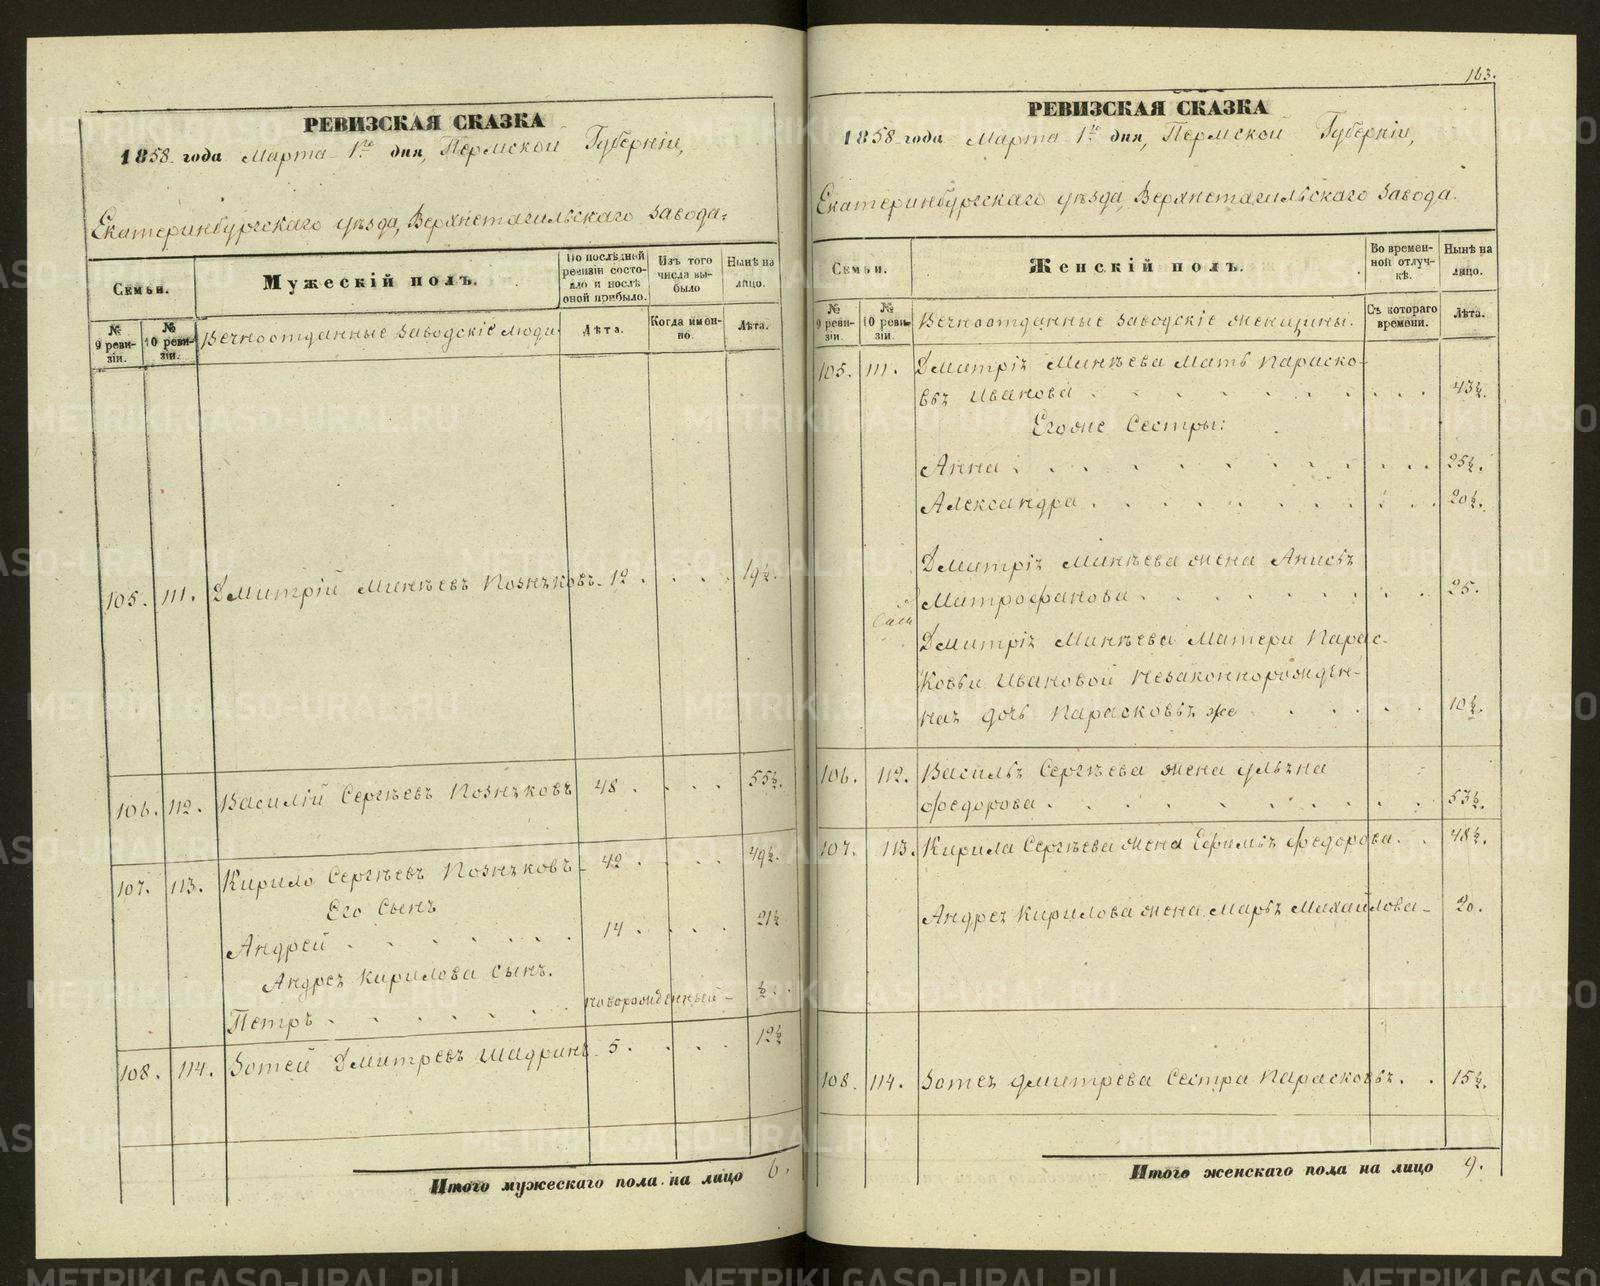 163.
РЕВИЗСКАЯ СКАЗКА
1858 года Марта 1го дня, Пермской Губерніи,
Екатеринбургскаго уѣзда, Верхнетагильскаго завода.
Семьи.
Мужескій полъ.
По послѣдней ревизіи состояло и послѣ оной прибыло.
Изъ того числа выбыло
Нынѣ на лицо.
№ 9 ревизіи.
№ 10 ревизіи.
Вечноотданные заводскіе люди.
Лѣта.
Когда именно.
Лѣта.
105. 111. Дмитрій Минѣевъ Познѣковъ 12 . . . . 19½.
106. 112. Василій Сергѣевъ Познѣковъ 48 . . . . 55½.
107. 113. Кирило Сергѣевъ Познѣковъ 42 . . . . 49½.
Его Сынъ
Андрей . . . . . . 14 . . . . 21½
Андреѣ Кирилова Сынъ.
Петръ . . . . . . новорожденный ½.
108. 114. Зотей Дмитревъ Шадринъ 5. . . . 12½
Итого мужескаго пола на лицо 6.
РЕВИЗСКАЯ СКАЗКА
1858 года Марта 1го дня, Пермской Губерніи,
Екатеринбургскаго уѣзда, Верхнетагильскаго завода.
Семьи.
Женскій полъ.
Во временной отлучкѣ.
Нынѣ на лицо.
№ 9 ревизіи.
№ 10 ревизіи.
Вечноотданные заводскіе женщины.
Съ котораго времени.
Лѣта.
105. 111. Дмитріѣ Минѣева Мать Параско-
вьѣ Иванова . . . . . . . . 43½.
Егоже Сестры:
Анна . . . . . . . . . . 25½.
Александра . . . . . . . . . 20½.
Дмитріѣ Минѣева жена Анисьѣ
Митрофанова . . . . . . . . . 25.
Дмитріѣ Минѣева Матери Парас-
ковьи Ивановой незаконнорожден-
наѣ дочь Парасковьѣ же . . . . . 10½.
106. 112. Васильѣ Сергѣева жена ульѣна
Федорова . . . . . . . . . . 53½.
107. 113. Кирила Сергѣева жена Ефимьѣ Федорова . . 48½.
Андреѣ Кирилова жена Марьѣ Михайлова 20.
108. 114. Зотеѣ Дмитрева Сестра Парасковьѣ . . 15½.
Итого женскаго пола на лицо 9.
METRIKI.GASO-URAL.RU